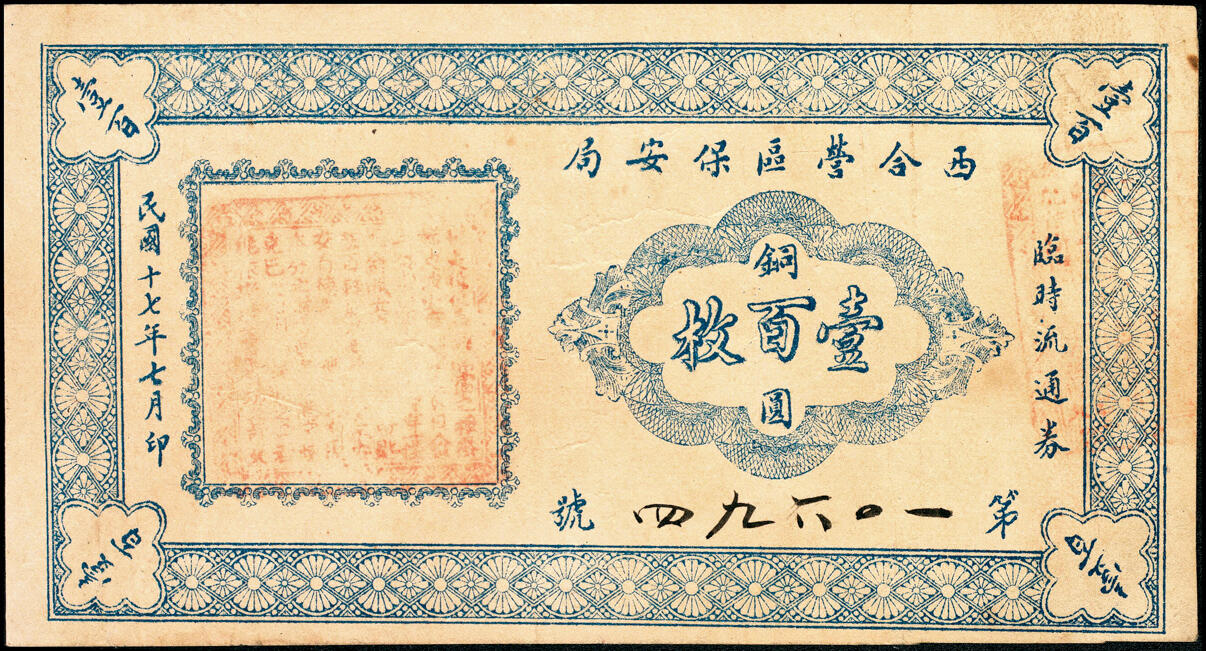 壹百
壹百
西合營區保安局
臨時流通券
銅圓
壹百枚
第一〇六九四號
民國十七年七月印
壹百
壹百